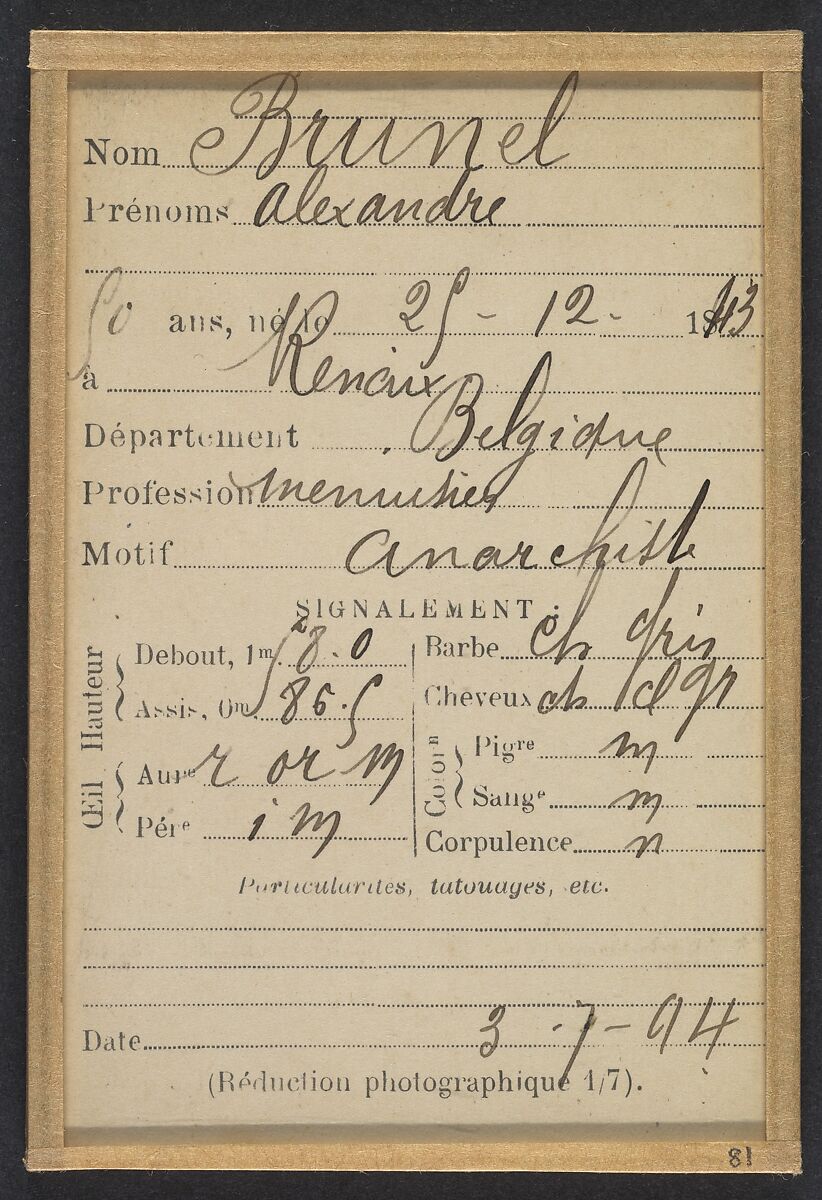 Nom Brunel
Prénoms alexandre
50 ans, né le 25 - 12 - 1843
à Renaix
Département Belgique
Profession menuisier
Motif anarchiste
SIGNALEMENT :
Hauteur
Debout, 1m 8.0
Assis, 0m 86.5
Œil
Aurle r or m
Pérle i m
Barbe ch gris
Cheveux ch d gr
Coloron
Pigre m
Sange m
Corpulence n
Particularités, tatouages, etc.
Date 3 - 7 - 94
(Réduction photographique 1/7).
81